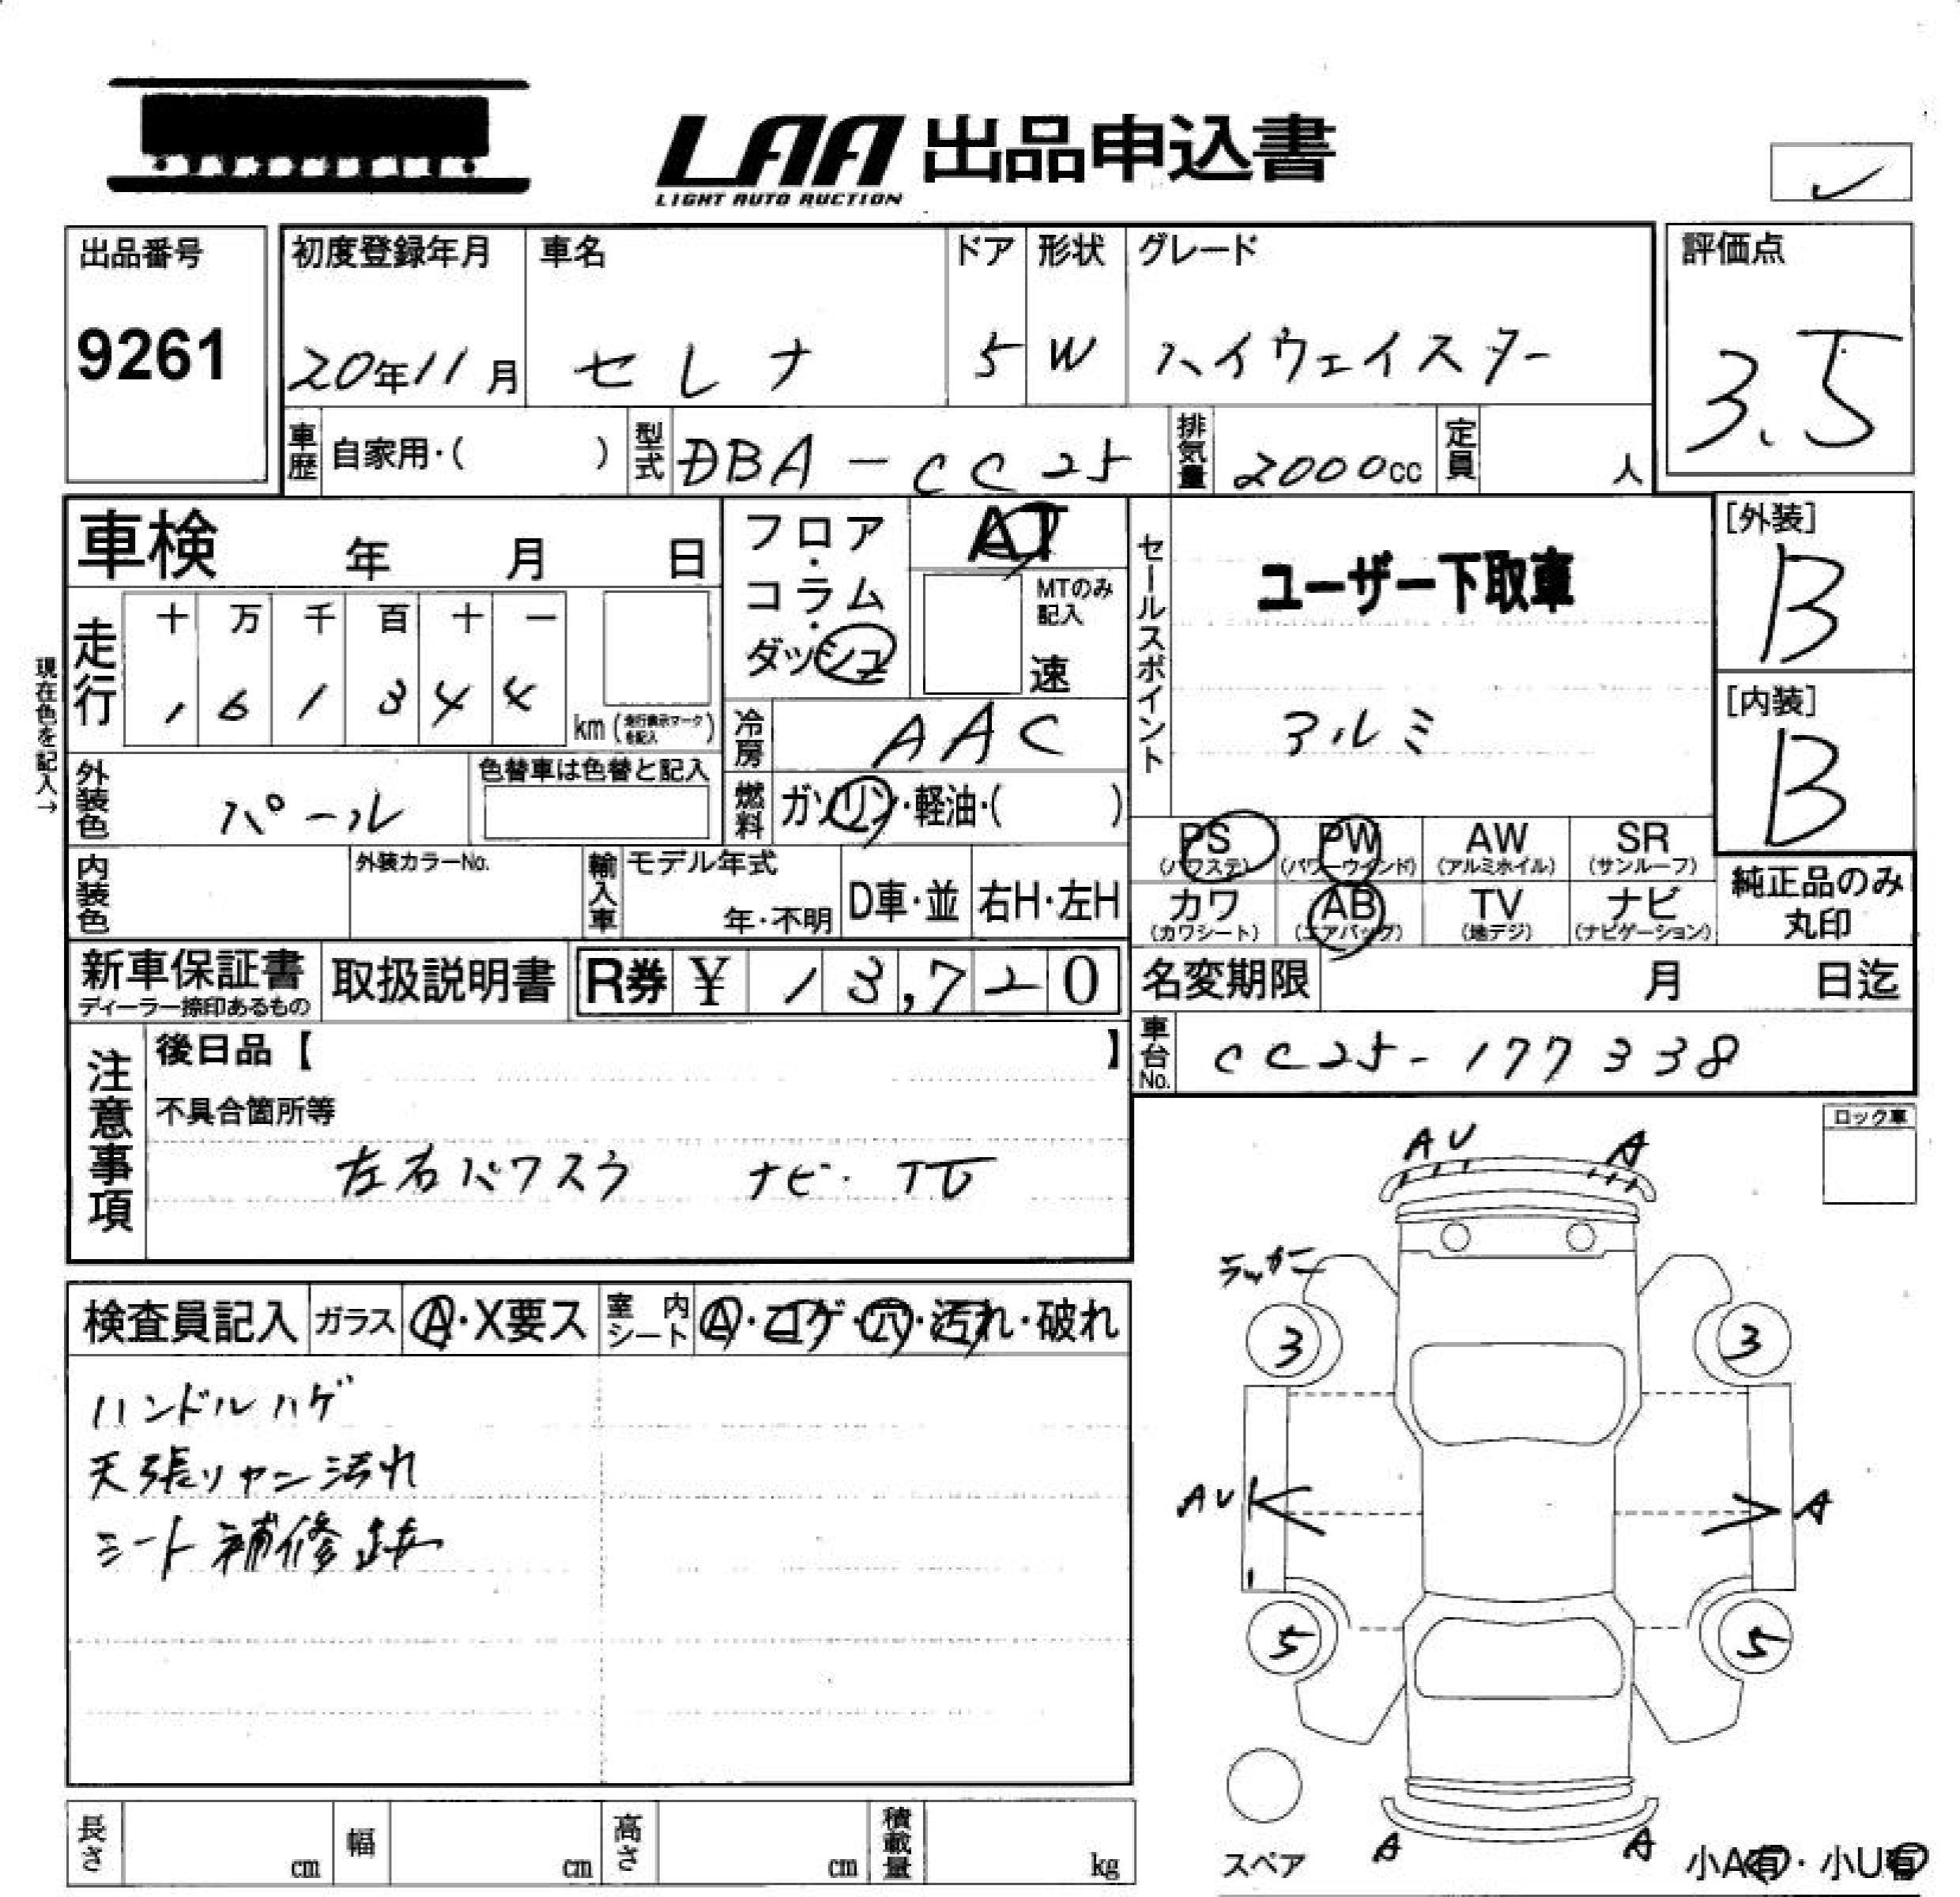 LAA 出品申込書
LIGHT AUTO AUCTION
出品番号
9261
初度登録年月 車名 ドア 形状 グレード
20年11月 セレナ 5 W ハイウェイスター
評価点
3.5
車歴 自家用・( ) 型式 DBA-CC25 排気量 2000cc 定員 人
車検 年 月 日
フロア・コラム・ダッシュ
AT
MTのみ記入
速
セールスポイント
ユーザー下取車
アルミ
[外装]
B
[内装]
B
現在色を記入→
走行
十 万 千 百 十 一
1 6 1 3 4 4
km (走行表示マークを記入)
冷房 AAC
外装色 パール 色替車は色替と記入
燃料 ガソリン・軽油・( )
内装色 外装カラーNo.
輸入車 モデル年式 年・不明 D車・並 右H・左H
PS (パワステ) PW (パワーウインド) AW (アルミホイル) SR (サンルーフ)
カワ (カワシート) AB (エアバッグ) TV (地デジ) ナビ (ナビゲーション)
純正品のみ丸印
新車保証書
ディーラー捺印あるもの
取扱説明書 R券 ¥ 13,720
名変期限 月 日迄
車台No. CC25-177338
注意事項
後日品【 】
不具合箇所等
左右パワスラ ナビ・TV
ロック車
検査員記入 ガラス A・X要ス 室内シート A・コゲ・穴・汚れ・破れ
ハンドルハゲ
天張リヤン汚れ
シート補修跡
AU A
3 3
AU A
5 5
A A
スペア 小A有・小U有
長さ cm 幅 cm 高さ cm 積載量 kg